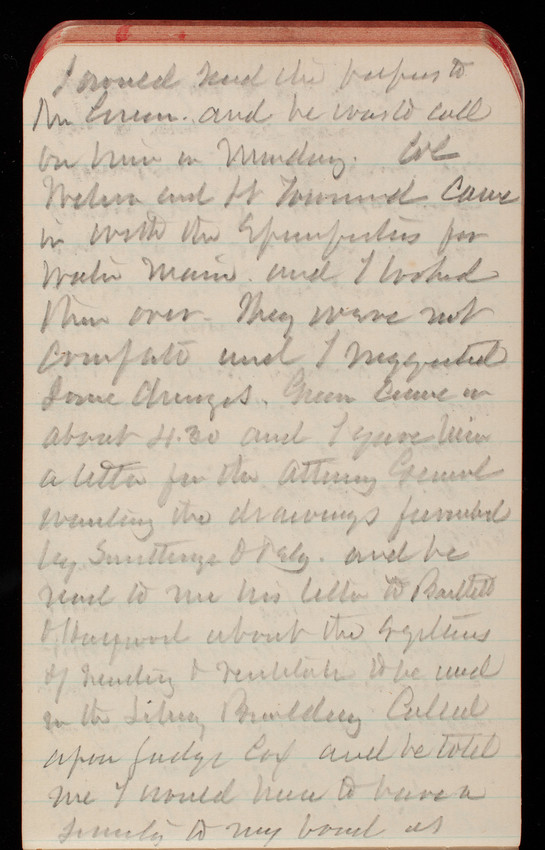 I would send the papers to
Mr Green. and he was to call
on him on Monday. Col
Wilson and Lt Townsend Came
in with the Specifications for
Water Main. and I looked
them over. They were not
Complete and I suggested
Some Changes. Green Came in
about 4.30 and I gave him
a letter for the Attorney General
wanting the drawings furnished
by Smithmeyer & Pelz. and he
read to me his letter to Bartlett
& Hayward about the Systems
of heating & ventilation to be used
in the Library Building Called
upon Judge Cox and he told
me I would have to have a
Surety to my bond as